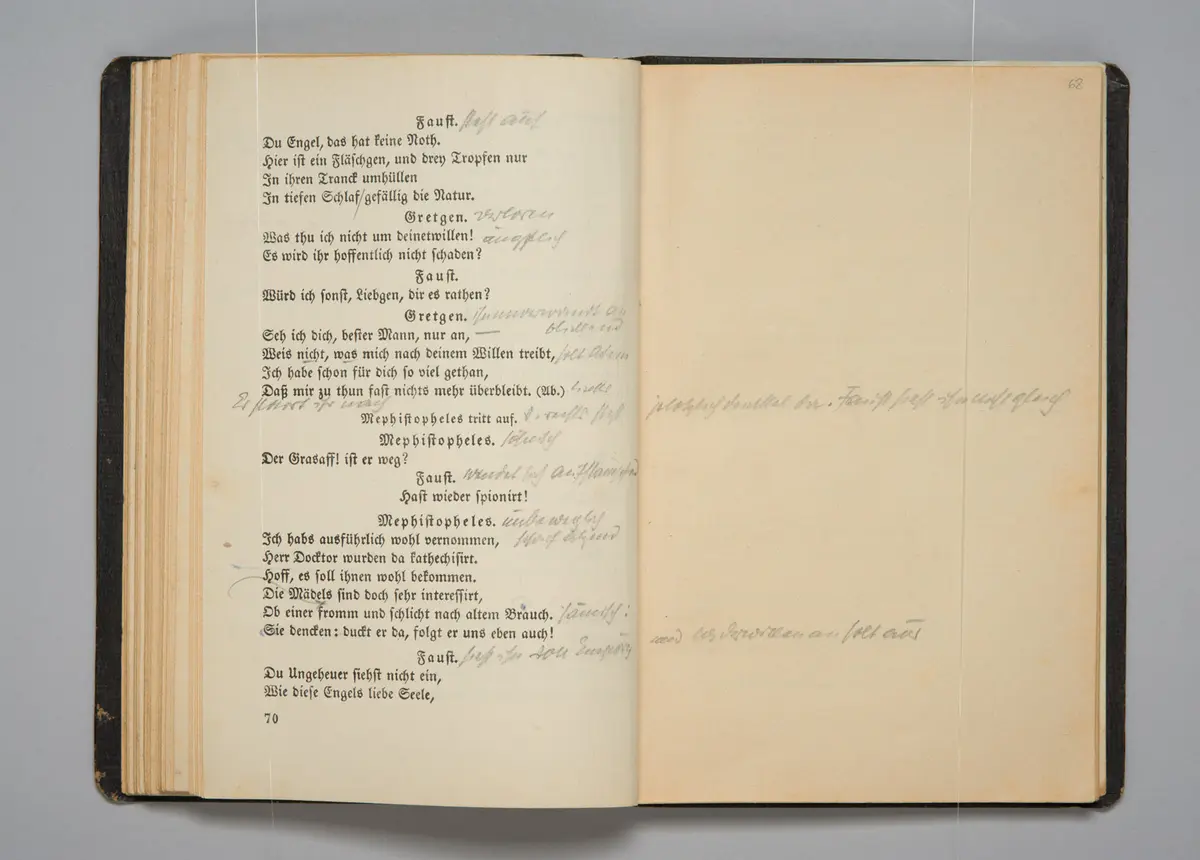 62
Faust. steht auf
Du Engel, das hat keine Noth.
Hier ist ein Fläschgen, und drey Tropfen nur
In ihren Tranck umhüllen
In tiefen Schlaf/gefällig die Natur.
Gretgen. verloren
Was thu ich nicht um deinetwillen! ängstlich
Es wird ihr hoffentlich nicht schaden?
Faust.
Würd ich sonst, Liebgen, dir es rathen?
Gretgen.
Seh ich dich, bester Mann, nur an, —
Weis nicht, was mich nach deinem Willen treibt, holt Atem
Ich habe schon für dich so viel gethan,
Daß mir zu thun fast nichts mehr überbleibt. (Ab.)
Er starrt ihr nach
Mephistopheles tritt auf. plötzlich Faust ihn nicht gleich
Mephistopheles. höhnisch
Der Grasaff! ist er weg?
Faust. wendet sich
Hast wieder spionirt!
Mephistopheles. unbeweglich
Ich habs ausführlich wohl vernommen,
Herr Docktor wurden da kathechisirt.
Hoff, es soll ihnen wohl bekommen.
Die Mädels sind doch sehr interessirt,
Ob einer fromm und schlicht nach altem Brauch. hämisch:
Sie dencken: duckt er da, folgt er uns eben auch!
Faust. sieht ihn voll und Widerwillen an holt aus
Du Ungeheuer siehst nicht ein,
Wie diese Engels liebe Seele,
70